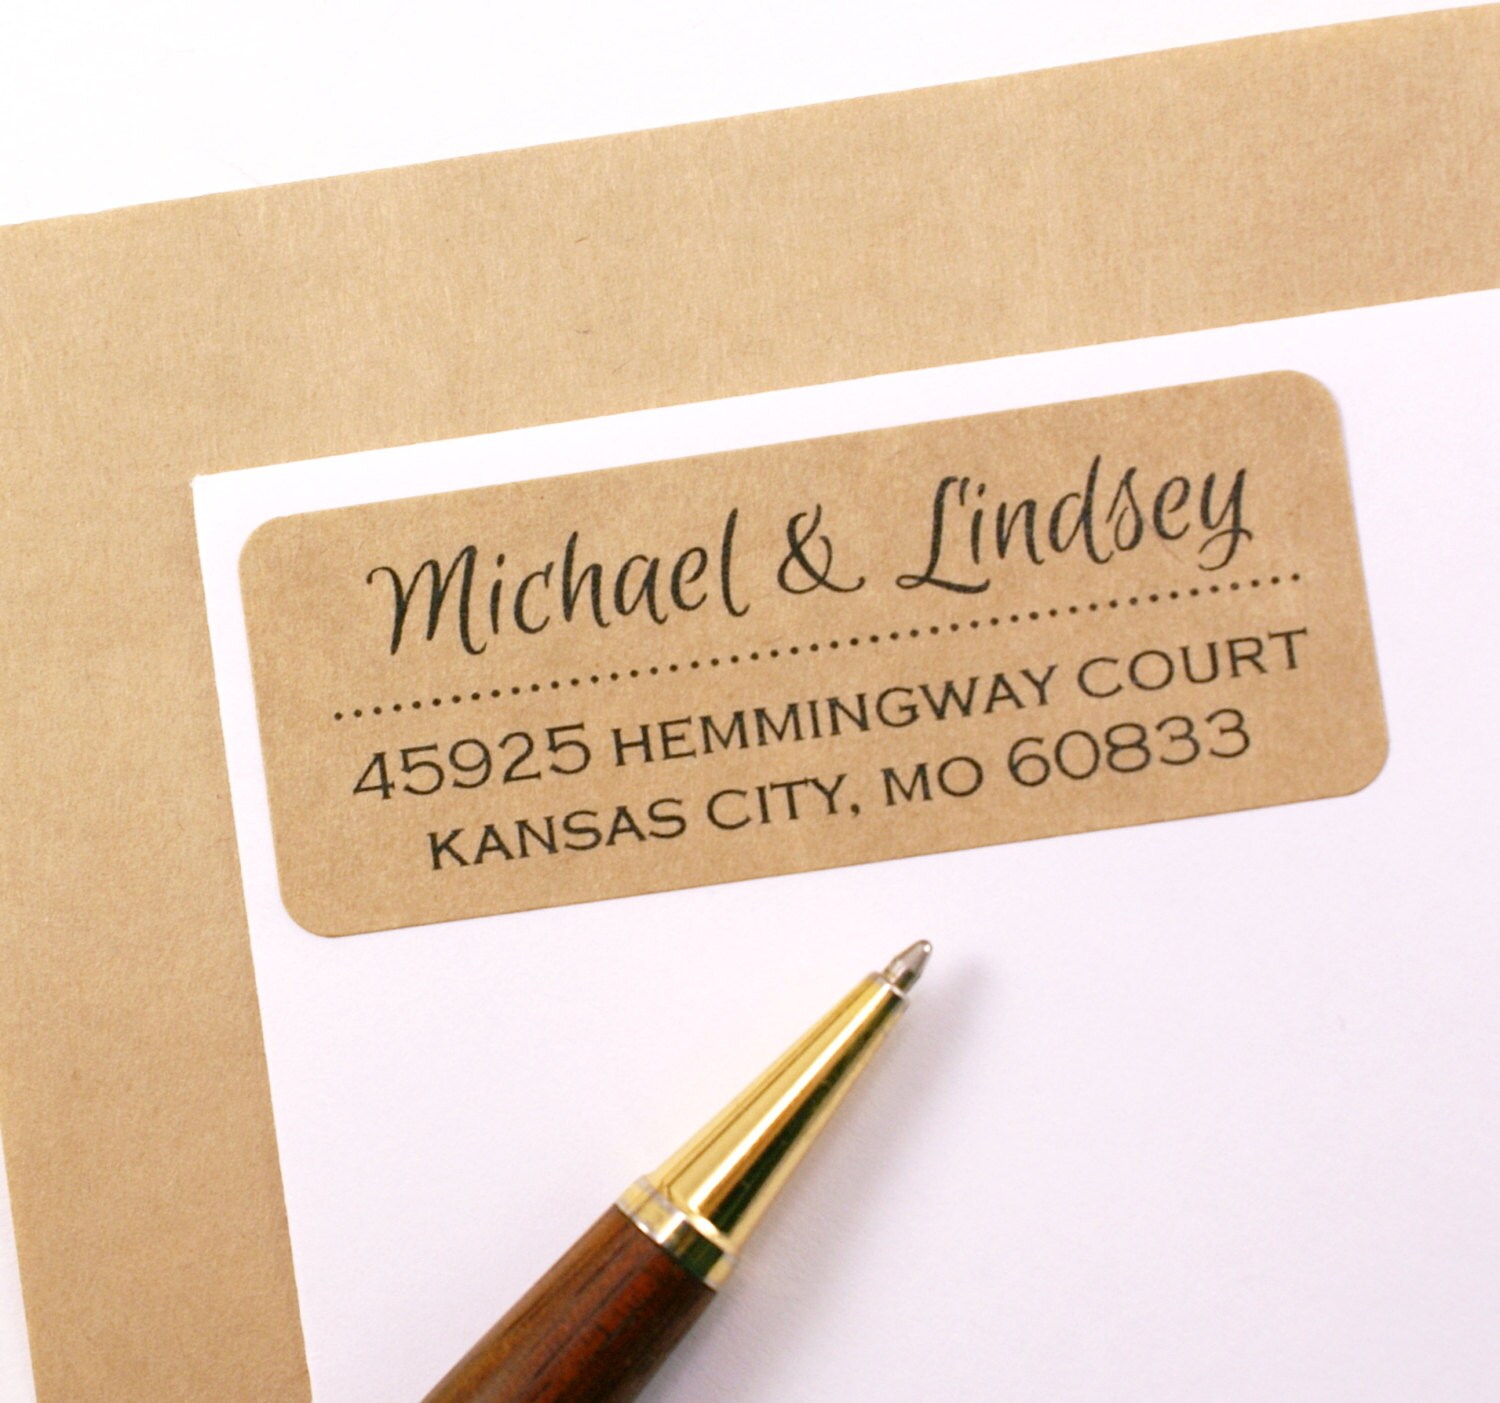 Michael & Lindsey
45925 HEMMINGWAY COURT
KANSAS CITY, MO 60833